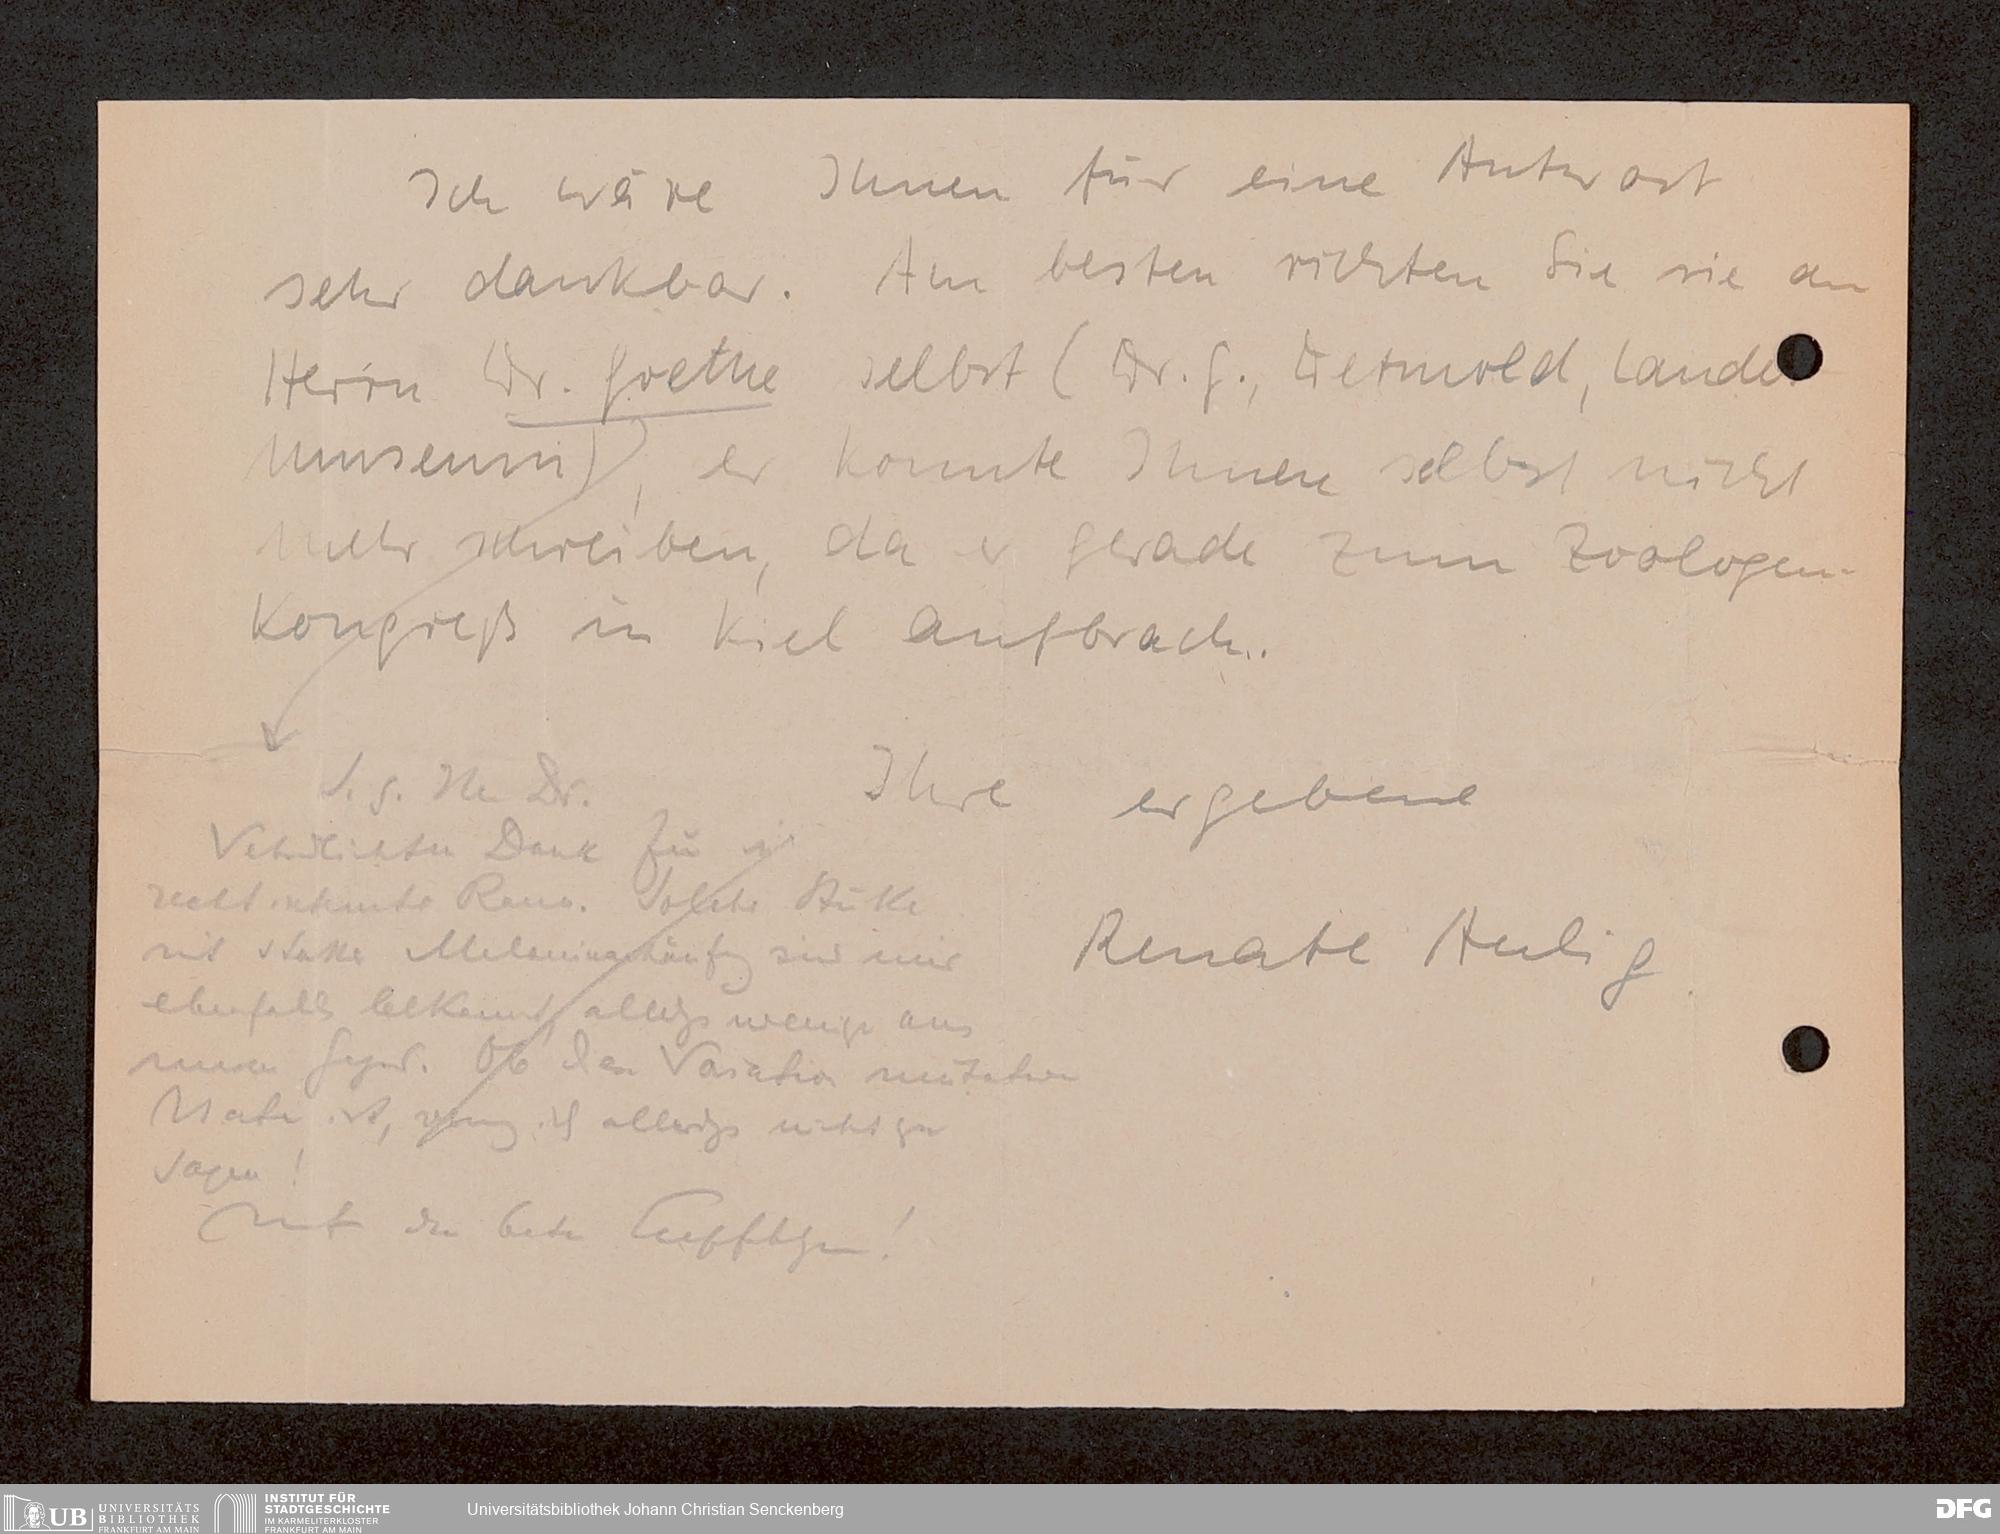 Ich wäre Ihnen für eine Antwort
sehr dankbar. Am besten richten Sie sie an
Herrn Dr. Goethe selbst (Dr. G., Detmold, Landes
museum), er konnte Ihnen selbst nicht
mehr schreiben, da er gerade zum Zoologen-
kongreß in Kiel aufbrach.
Ihre ergebene
Renate Hulig
S. g. He Dr.
Dank für
recht Rana. Solche Stücke
mit starker sind mir
ebenfalls bekannt, allerdgs wenige aus
Gegend. Ob den Variation mutative
Natur ist, ich allerdgs nicht zu
sagen!
Mit den besten
UB UNIVERSITÄTS
BIBLIOTHEK
FRANKFURT AM MAIN
INSTITUT FÜR
STADTGESCHICHTE
IM KARMELITERKLOSTER
FRANKFURT AM MAIN
Universitätsbibliothek Johann Christian Senckenberg
DFG